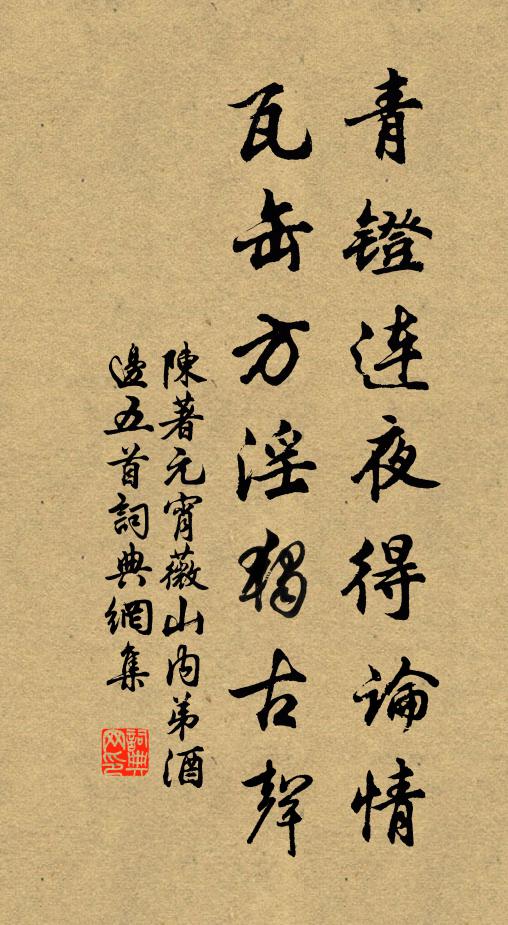 青鐙連夜得論情
瓦缶方淫獨古聲
陳著元宵薇山內弟酒
邊五首詞典網集
詞典
网